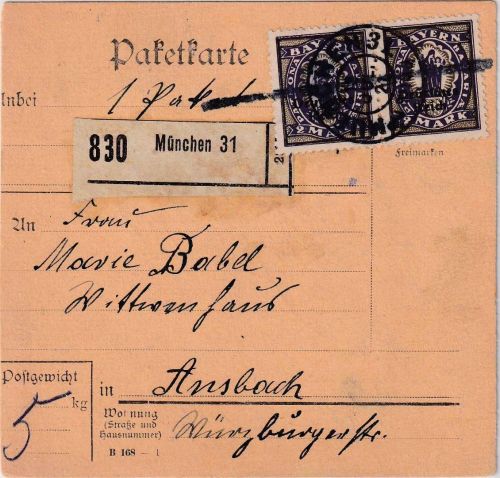 Paketkarte
Inbei 1 Paket
BAYERN
2 MARK
BAYERN
2 MARK
Freimarken
830 München 31
An Frau
Marie Babel
Wittwenhaus
Postgewicht
5 kg
in Ansbach
Wohnung
(Straße und
Hausnummer) Würzburgerstr.
B 168 - 1